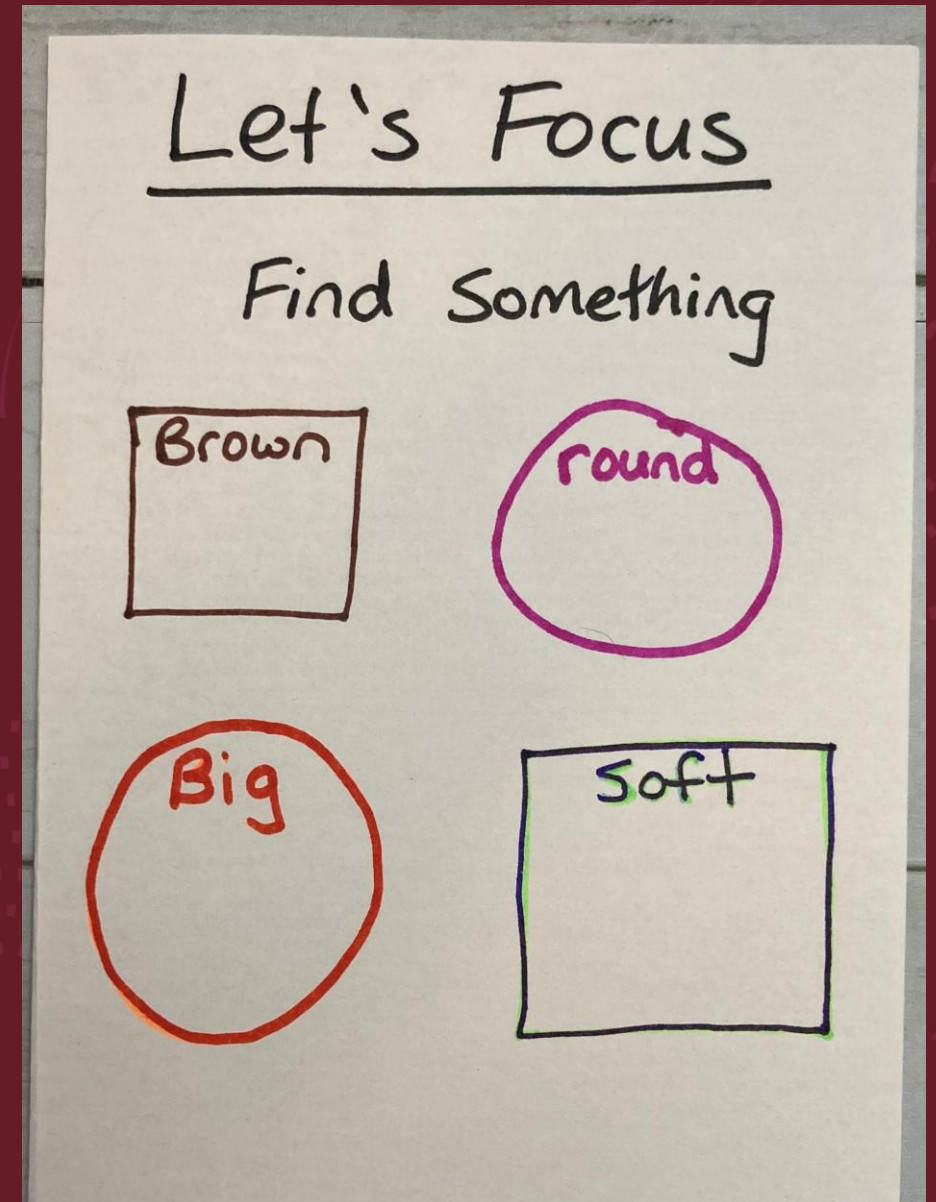 Let's Focus
Find Something
Brown
round
Big
Soft